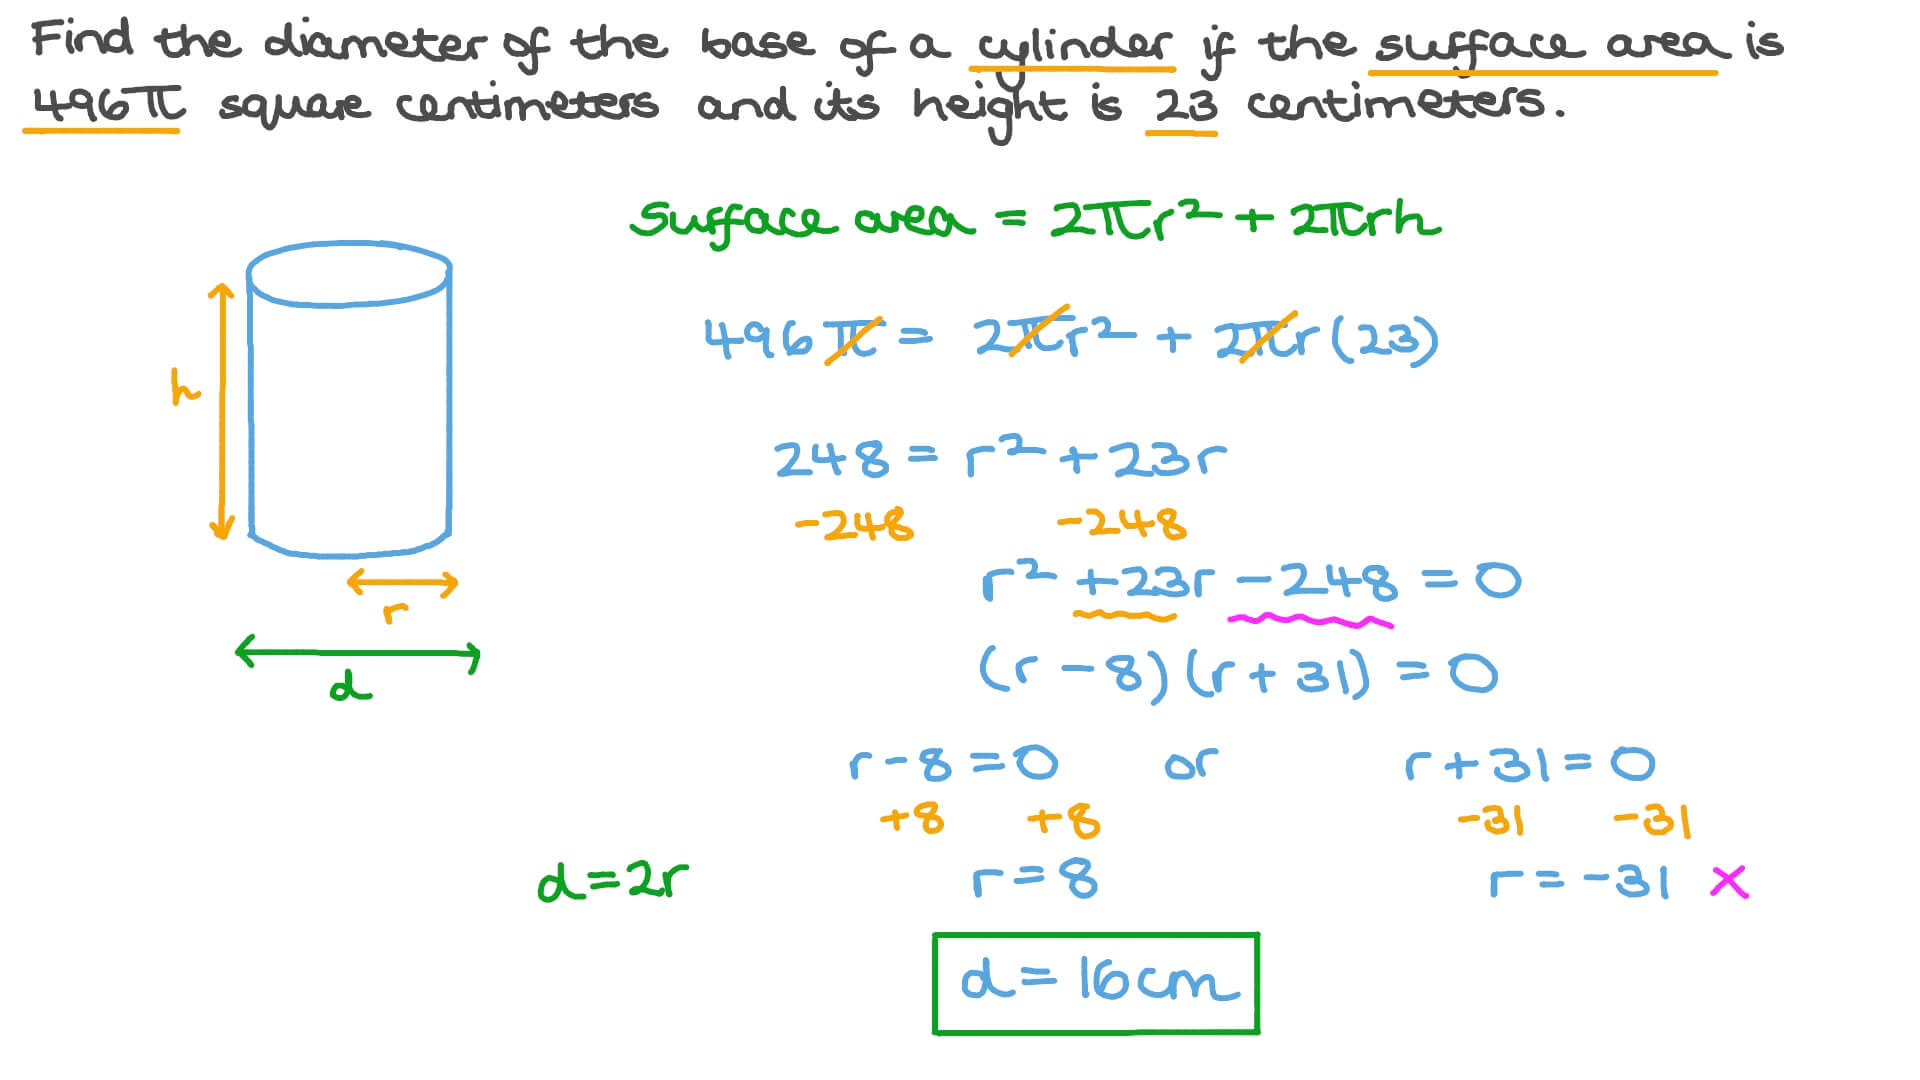 Find the diameter of the base of a cylinder if the surface area is
496π square centimeters and its height is 23 centimeters.
Surface area = 2πr² + 2πrh
496π = 2πr² + 2πr(23)
h
248 = r² + 23r
-248 -248
r² + 23r - 248 = 0
r
(r - 8)(r + 31) = 0
d
r - 8 = 0 or r + 31 = 0
+8 +8 -31 -31
d = 2r r = 8 r = -31 ×
d = 16 cm